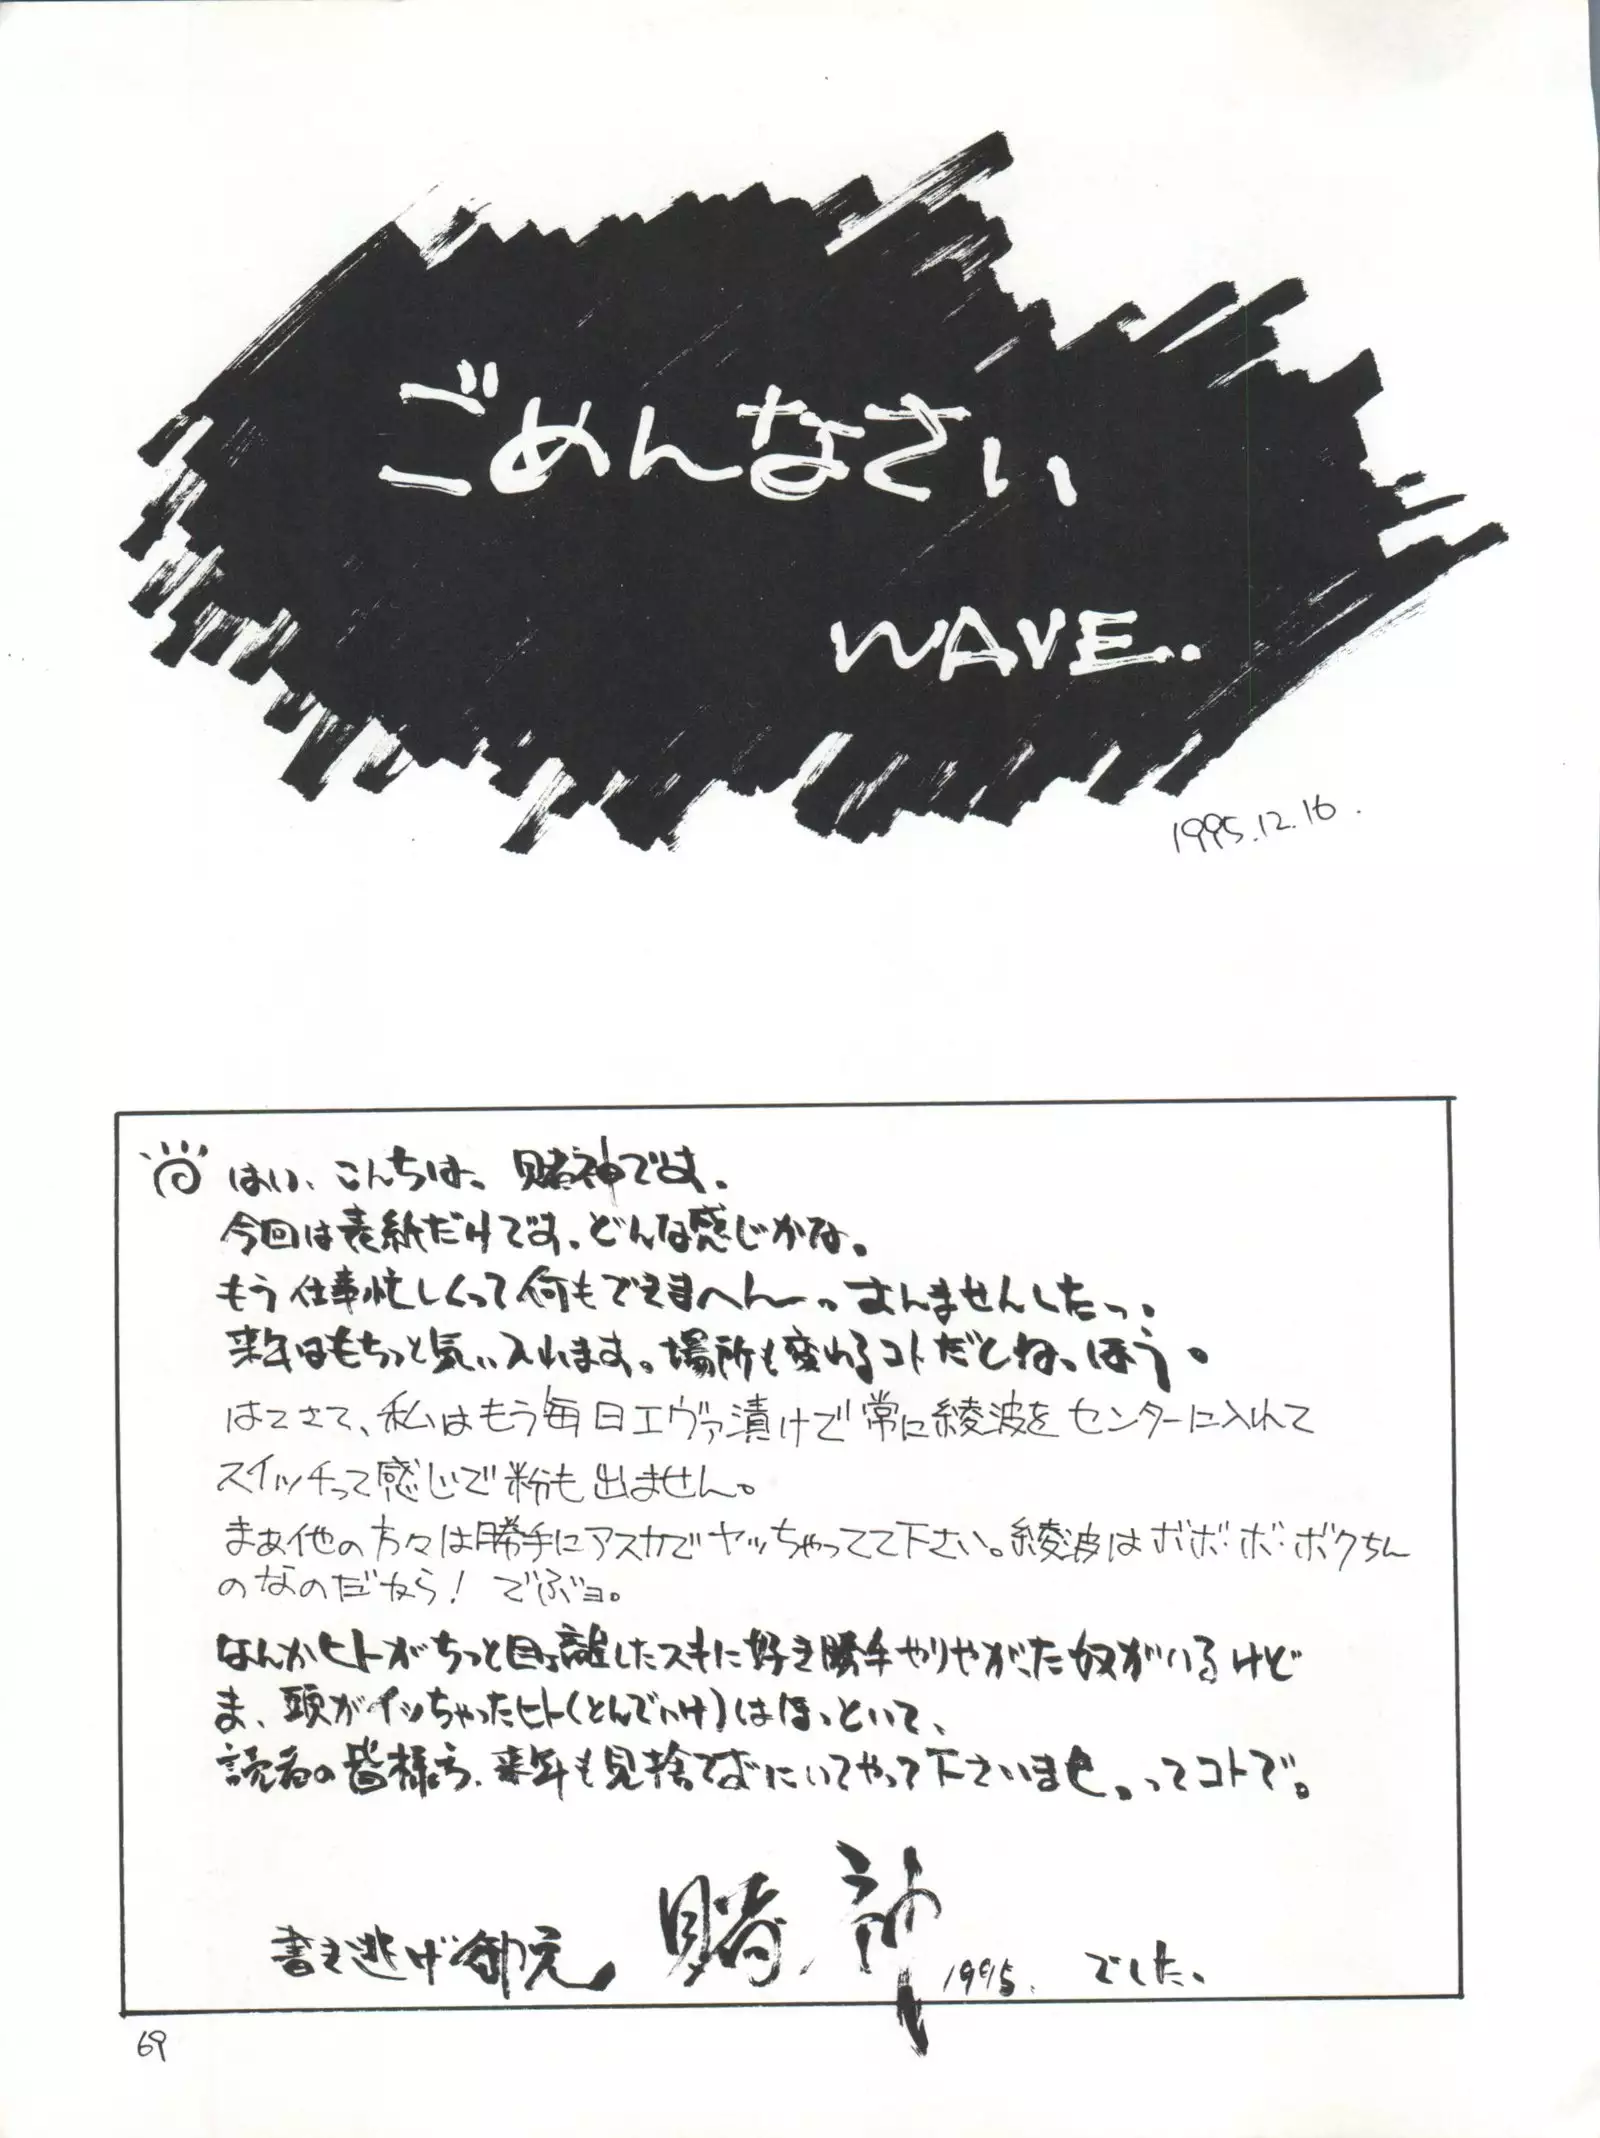 ごめんなさい
WAVE.
1995.12.16.
はい、こんちは、賭神です。
今回は表紙だけです。どんな感じかな。
もう仕事忙しくって何もできまへんー。すんませんしたっ。
来年はもちっと気ぃ入れます。場所も変わるコトだしねっ。ほう。
はてさて、私はもう毎日エヴァ漬けで常に綾波をセンターに入れて
スイッチって感じで粉も出ません。
まぁ他の方々は勝手にアスカでヤッちゃってて下さい。綾波はボボ・ボ・ボクちん
のなのだから! でぶョ。
なんかヒトがちっと目ぇ離したスキに好き勝手やりやがった奴がいるけど
ま、頭がイッちゃったヒト(とんでいけ)はほっといて、
読者の皆様方、来年も見捨てずにいてやって下さいませ。ってコトで。
書き逃げ御免
賭神
1995.
でした。
69